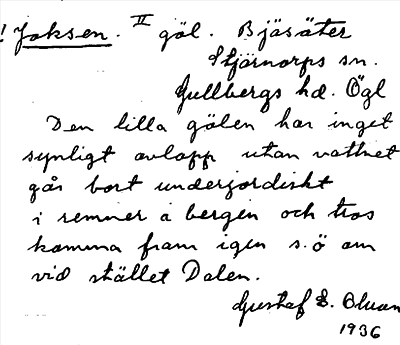 ! Joksen. II göl. Bjäsäter
Stjärnorps sn.
Gullbergs hd. Ögl
Den lilla gölen har inget
synligt avlopp utan vattnet
går bort underjordiskt
i remnor å bergen och tros
komma fram igen s.ö om
vid stället Dalen.
Gustaf E.
1936